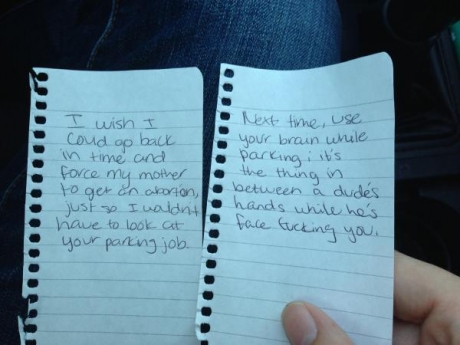 I wish I
Could go back
in time and
force my mother
to get an abortion,
just so I wouldn't
have to look at
your parking job.
Next time, use
your brain while
parking; it's
the thing in
between a dude's
hands while he's
face fucking you.